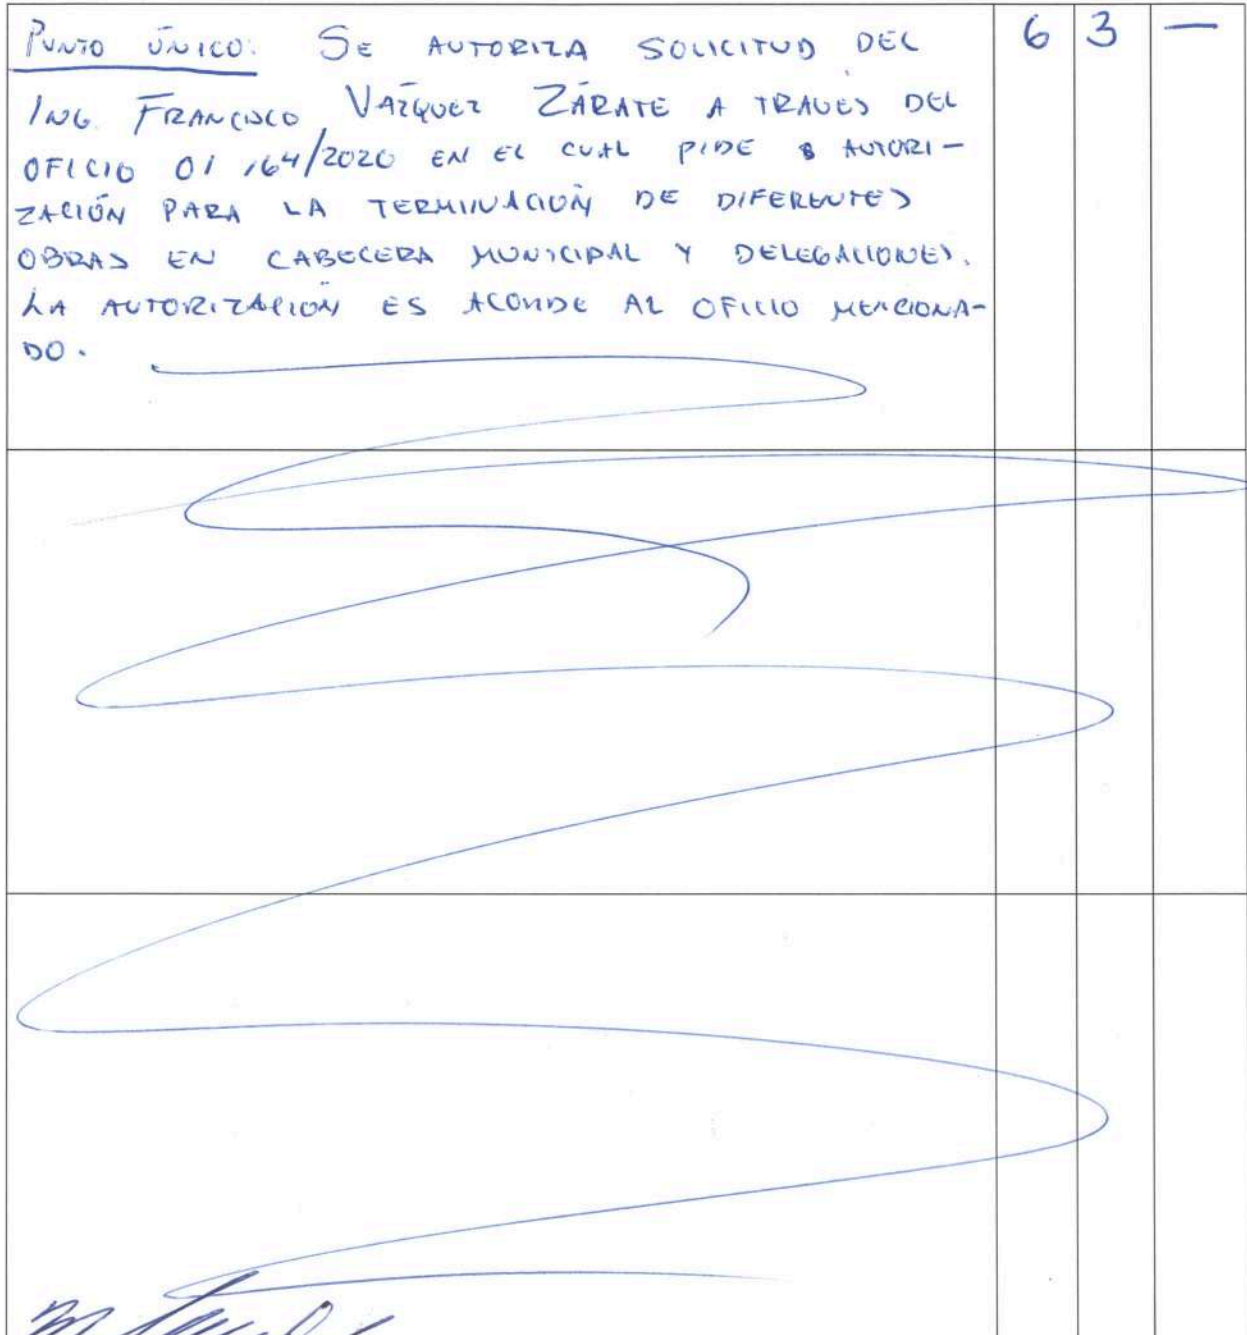 PUNTO ÚNICO: SE AUTORIZA SOLICITUD DEL 6 3 —
ING. FRANCISCO VAZQUEZ ZÁRATE A TRAVES DEL
OFICIO 01 164/2020 EN EL CUAL PIDE AUTORI-
ZACIÓN PARA LA TERMINACIÓN DE DIFERENTES
OBRAS EN CABECERA MUNICIPAL Y DELEGACIONES.
LA AUTORIZACIÓN ES ACORDE AL OFICIO MENCIONA-
DO.